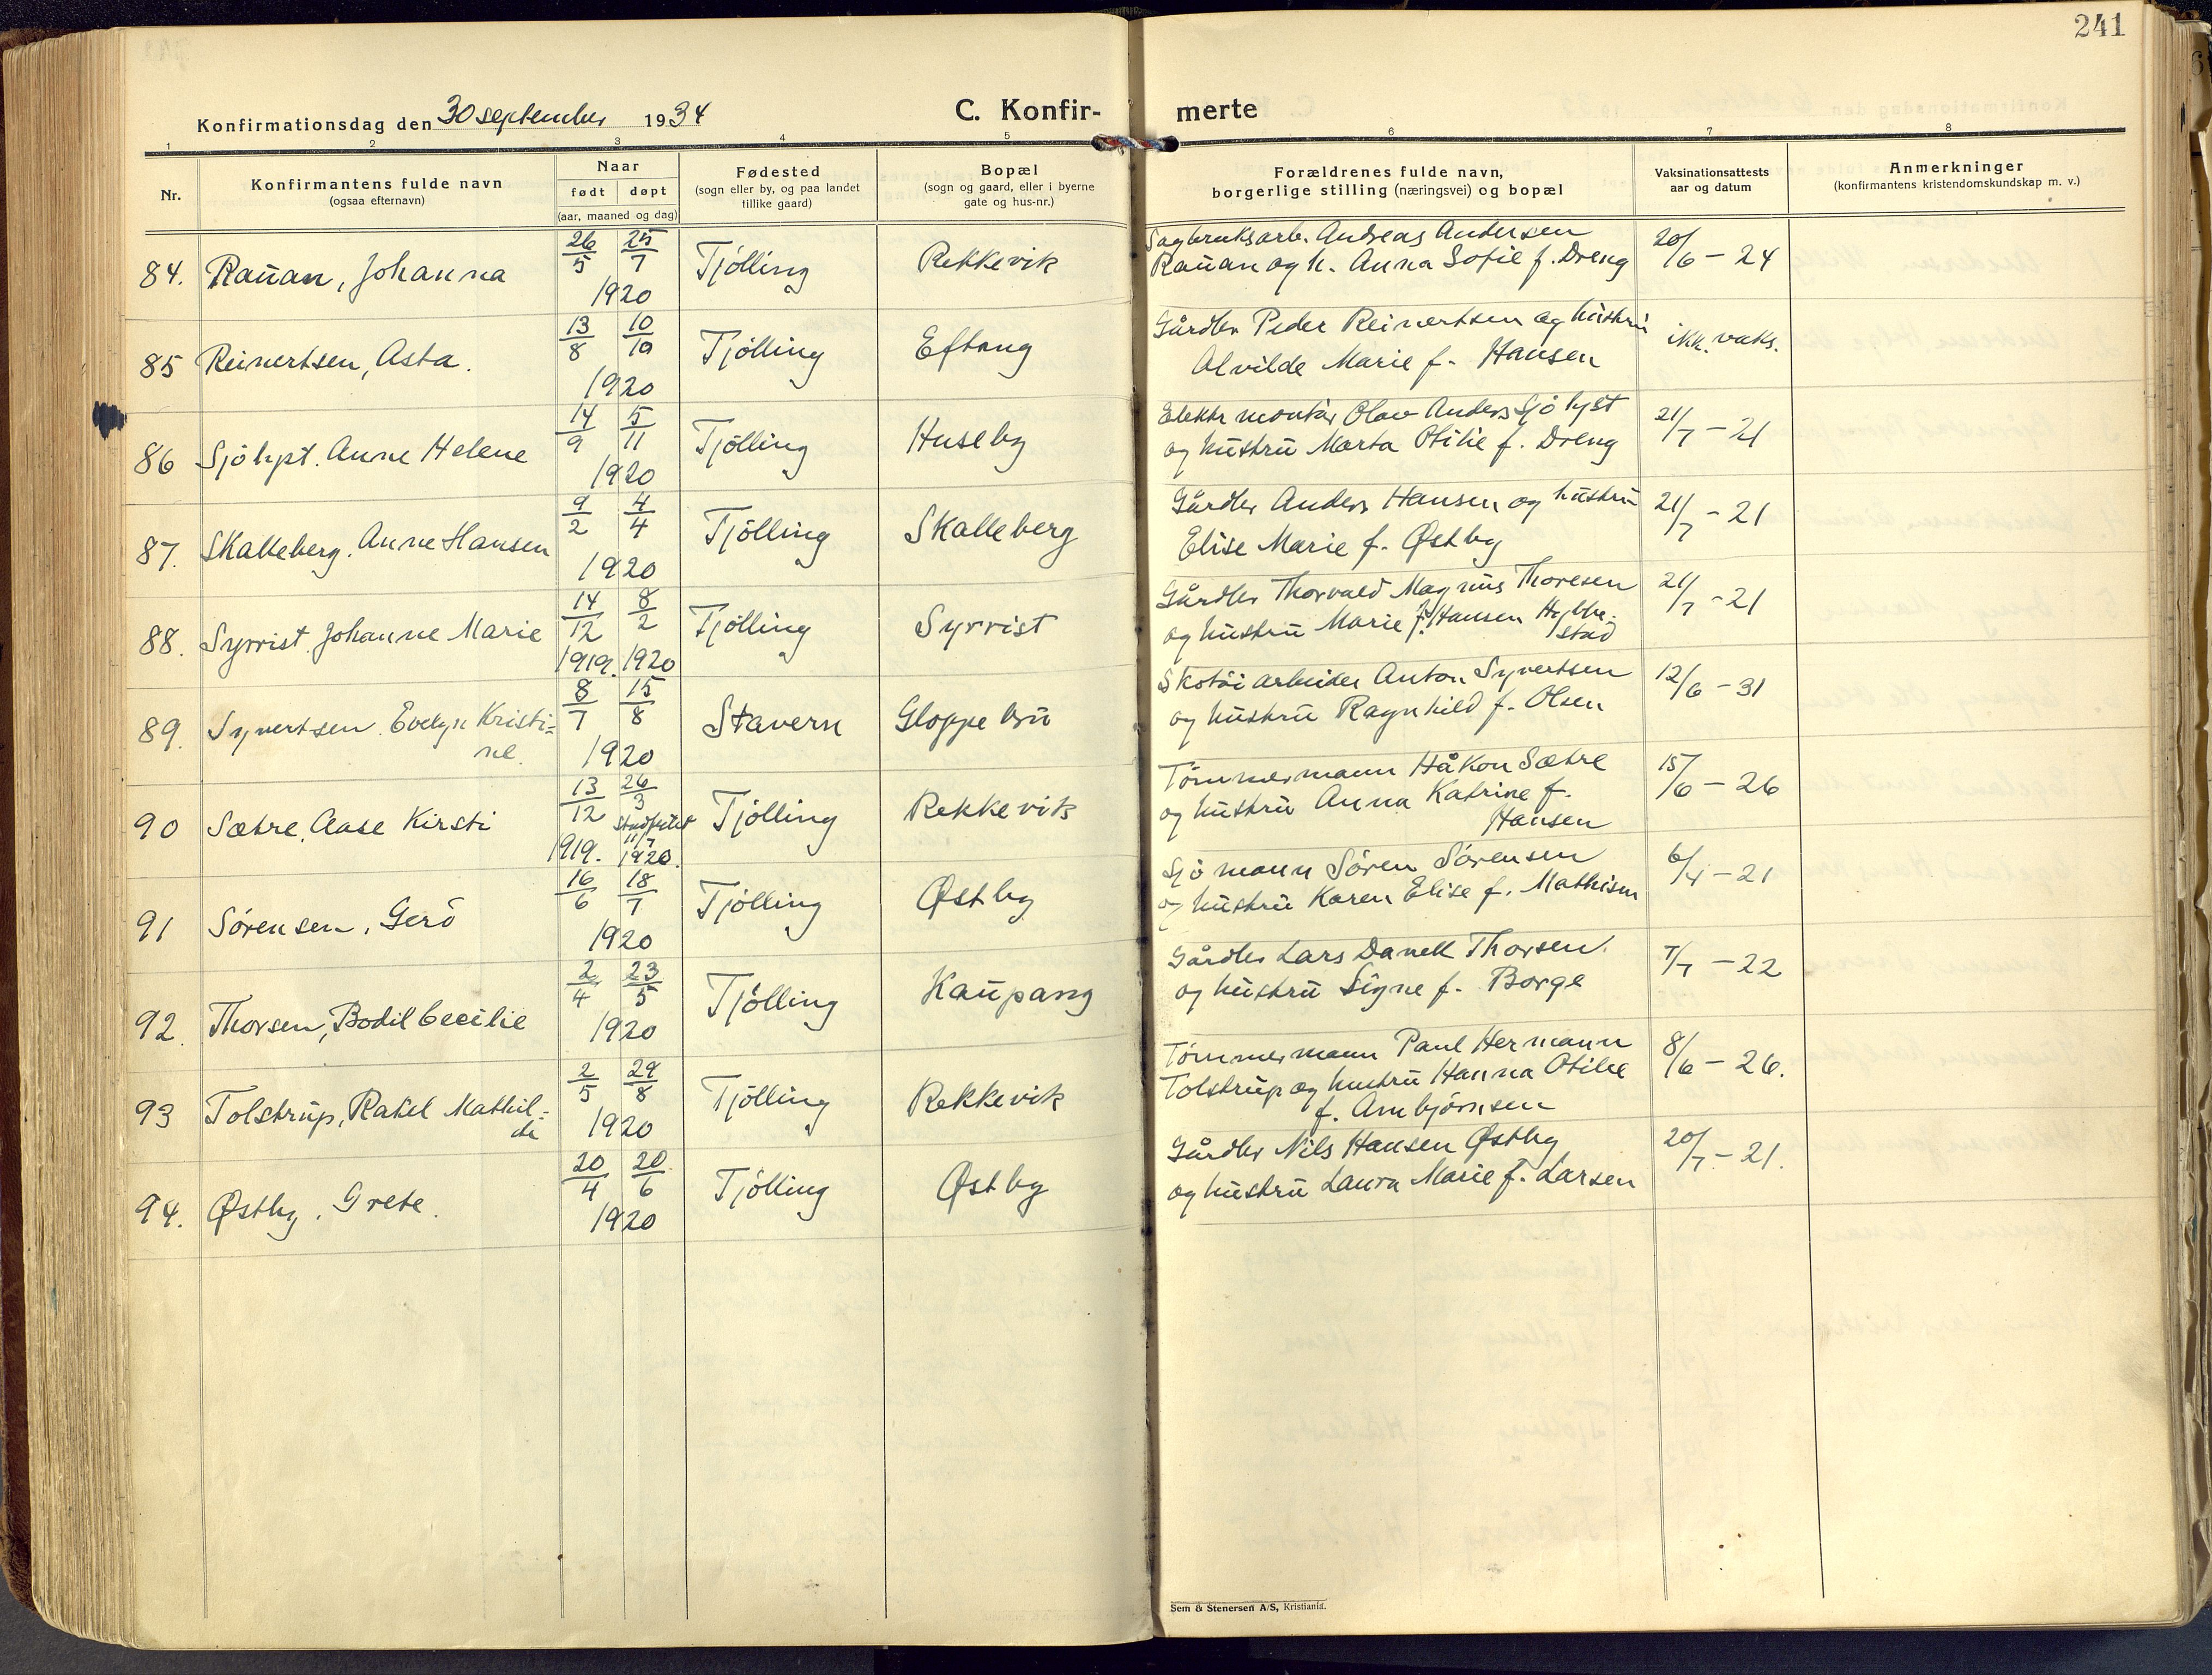 241
Konfirmationsdag den 30 september 1934
C. Konfir-
merte
1 2 3 4 5 6 7 8
Nr.
Konfirmantens fulde navn
(ogsaa efternavn)
Naar
født døpt
(aar, maaned og dag)
Fødested
(sogn eller by, og paa landet
tillike gaard)
Bopæl
(sogn og gaard, eller i byerne
gate og hus-nr.)
Forældrenes fulde navn,
borgerlige stilling (næringsvei) og bopæl
Vaksinationsattests
aar og datum
Anmerkninger
(konfirmantens kristendomskundskap m. v.)
84. Rauan, Johanna 26/5 25/7 1920 Tjölling Rekkevik
Sagbruksarb. Andreas Andersen
Rauan og h. Anna Sofie f. Dreng 20/6 - 24
85 Reinertsen, Asta. 13/8 10/10 1920 Tjölling Eftang
Gårdbr Peder Reinertsen og hustru
Alvilde Marie f. Hansen ikk. vaks.
86 Sjölyst. Anne Helene 14/9 5/11 1920 Tjölling Huseby
Elektr montör Olav Anders Sjölyst
og hustru Marta Otilie f. Dreng 21/7 - 21
87. Skalleberg. Anne Hansen 9/2 4/4 1920 Tjölling Skalleberg
Gårdbr Anders Hansen og hustru
Elise Marie f. Østby 21/7 - 21
88. Syrrist. Johanne Marie 14/12 1919. 8/2 1920 Tjölling Syrrist
Gårdbr Thorvald Magnus Thoresen
og hustru Marie f. Hansen Hybbe-
stad 21/7 - 21
89. Syvertsen. Evelyn Kristi=
ne. 8/7 15/8 1920 Stavern Gloppebru
Skotöiarbeider Anton Syvertsen
og hustru Ragnhild f. Olsen 12/6 - 31
90 Sætre. Aase Kirsti 13/12 1919. 26/3 stadfestet 11/7 1920. Tjölling Rekkevik
Tömmermann Håkon Sætre
og hustru Anna Katrine f.
Hansen 15/6 - 26
91 Sörensen, Gerö 16/6 18/7 1920 Tjölling Østby
Sjömann Sören Sörensen
og hustru Karen Elise f. Mathisen 6/4 - 21
92. Thorsen, Bodil Cecilie 2/4 23/5 1920 Tjölling Kaupang
Gårdbr Lars Danell Thorsen.
og hustru Signe f. Borge 7/7 - 22
93 Tolstrup, Rakel Mathil-
de 2/5 29/8 1920 Tjölling Rekkevik
Tömmermann Paul Hermann
Tolstrup og hustru Hanna Otilie
f. Arnbjörnsen 8/6 - 26.
94. Østby. Grete. 20/4 20/6 1920 Tjölling Østby
Gårdbr Nils Hansen Østby
og hustru Laura Marie f. Larsen 20/7 - 21.
Sem & Stenersen A/S, Kristiania.